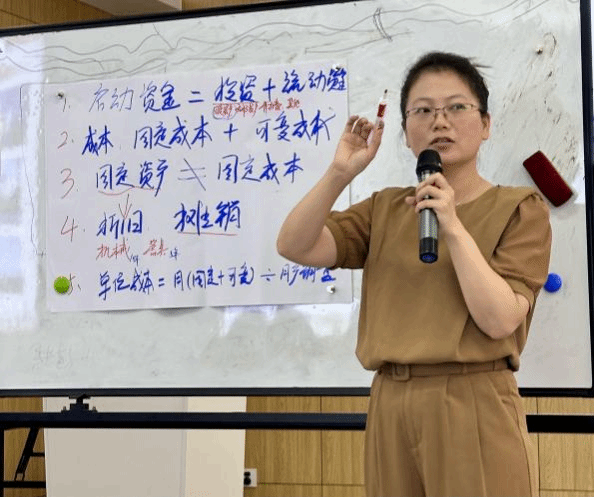 1. 启动资金 = 投资 + 流动资
2. 成本 固定成本 + 可变成本
3 固定资产 ≠ 固定成本
4. 折旧 摊销
机械 家具
5. 单位成本 = 月(固定+可变) ÷ 月产